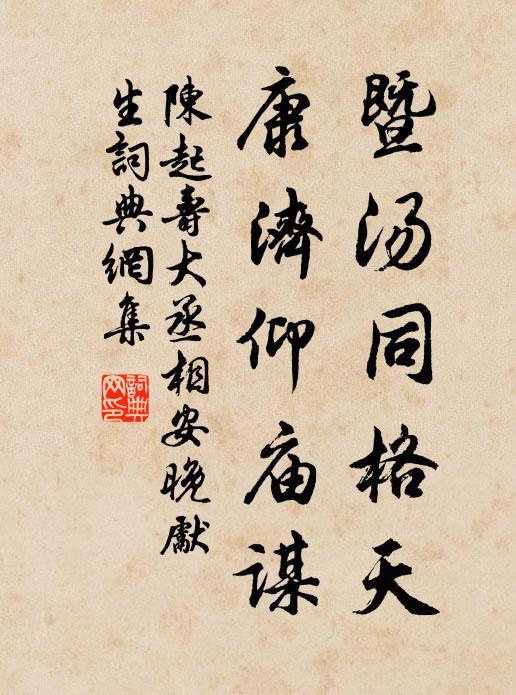 暨汤同格天
康濟仰庙謀
陳起壽大丞相安晚獻
生詞典網集
詞典
网印